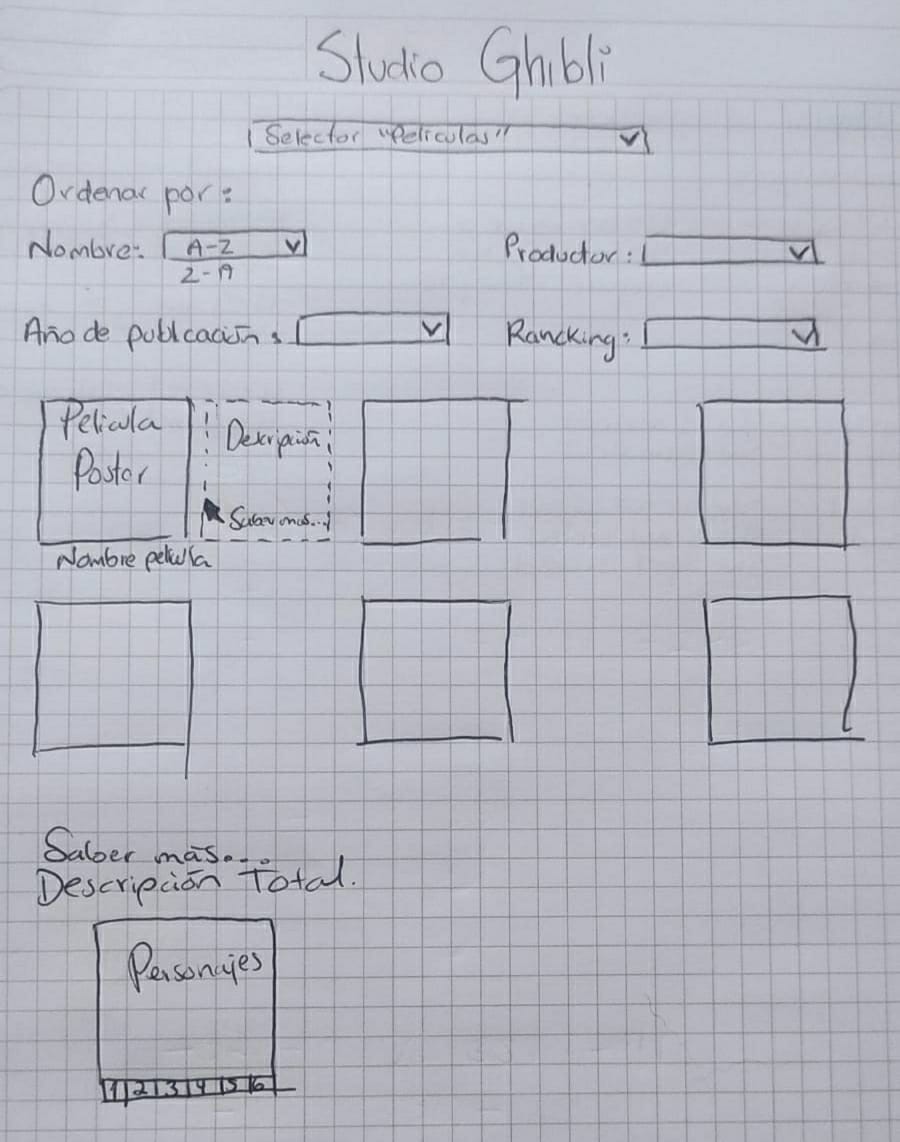 Studio Ghibli
Selector "Peliculas"
Ordenar por:
Nombre: A-Z
Z-A
Productor:
Año de publicación:
Rancking:
Pelicula
Poster
Descripción
Saber mas...
Nombre pelicula
Saber más...
Descripción Total.
Personajes
1 2 3 4 5 6